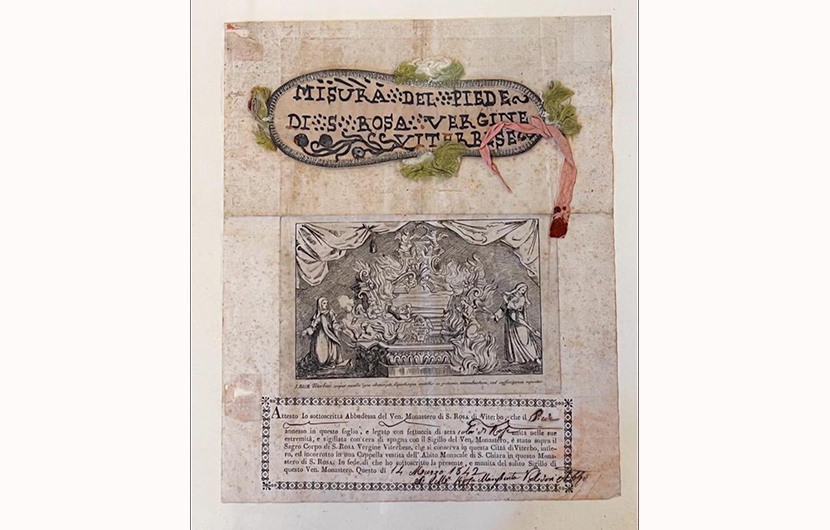 MISURA DEL PIEDE
DI S ROSA VERGINE
VITERBESE
Attesto Io sottoscritta Abbadessa del Ven. Monastero di S. Rosa di Viterbo, che il
annesso in questo foglio, e legato con fettuccia di seta nelle sue
estremità, e sigillata con cera di spagna con il Sigillo del Ven. Monastero, è stato sopra il
Sagro Corpo di S. Rosa Vergine Viterbese, che si conserva in questa Città di Viterbo, intie-
ro, ed incorrotto in una Cappella vestita dell' Abito Monacale di S. Chiara in questo Mona-
stero di S. Rosa. In fede di che ho sottoscritto la presente, e munita del solito Sigillo di
questo Ven. Monastero. Questo dì 14 Marzo 1842